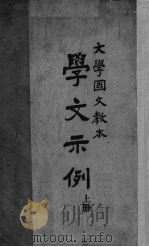 大學國文教本
學文示例
上册
mtoou.info